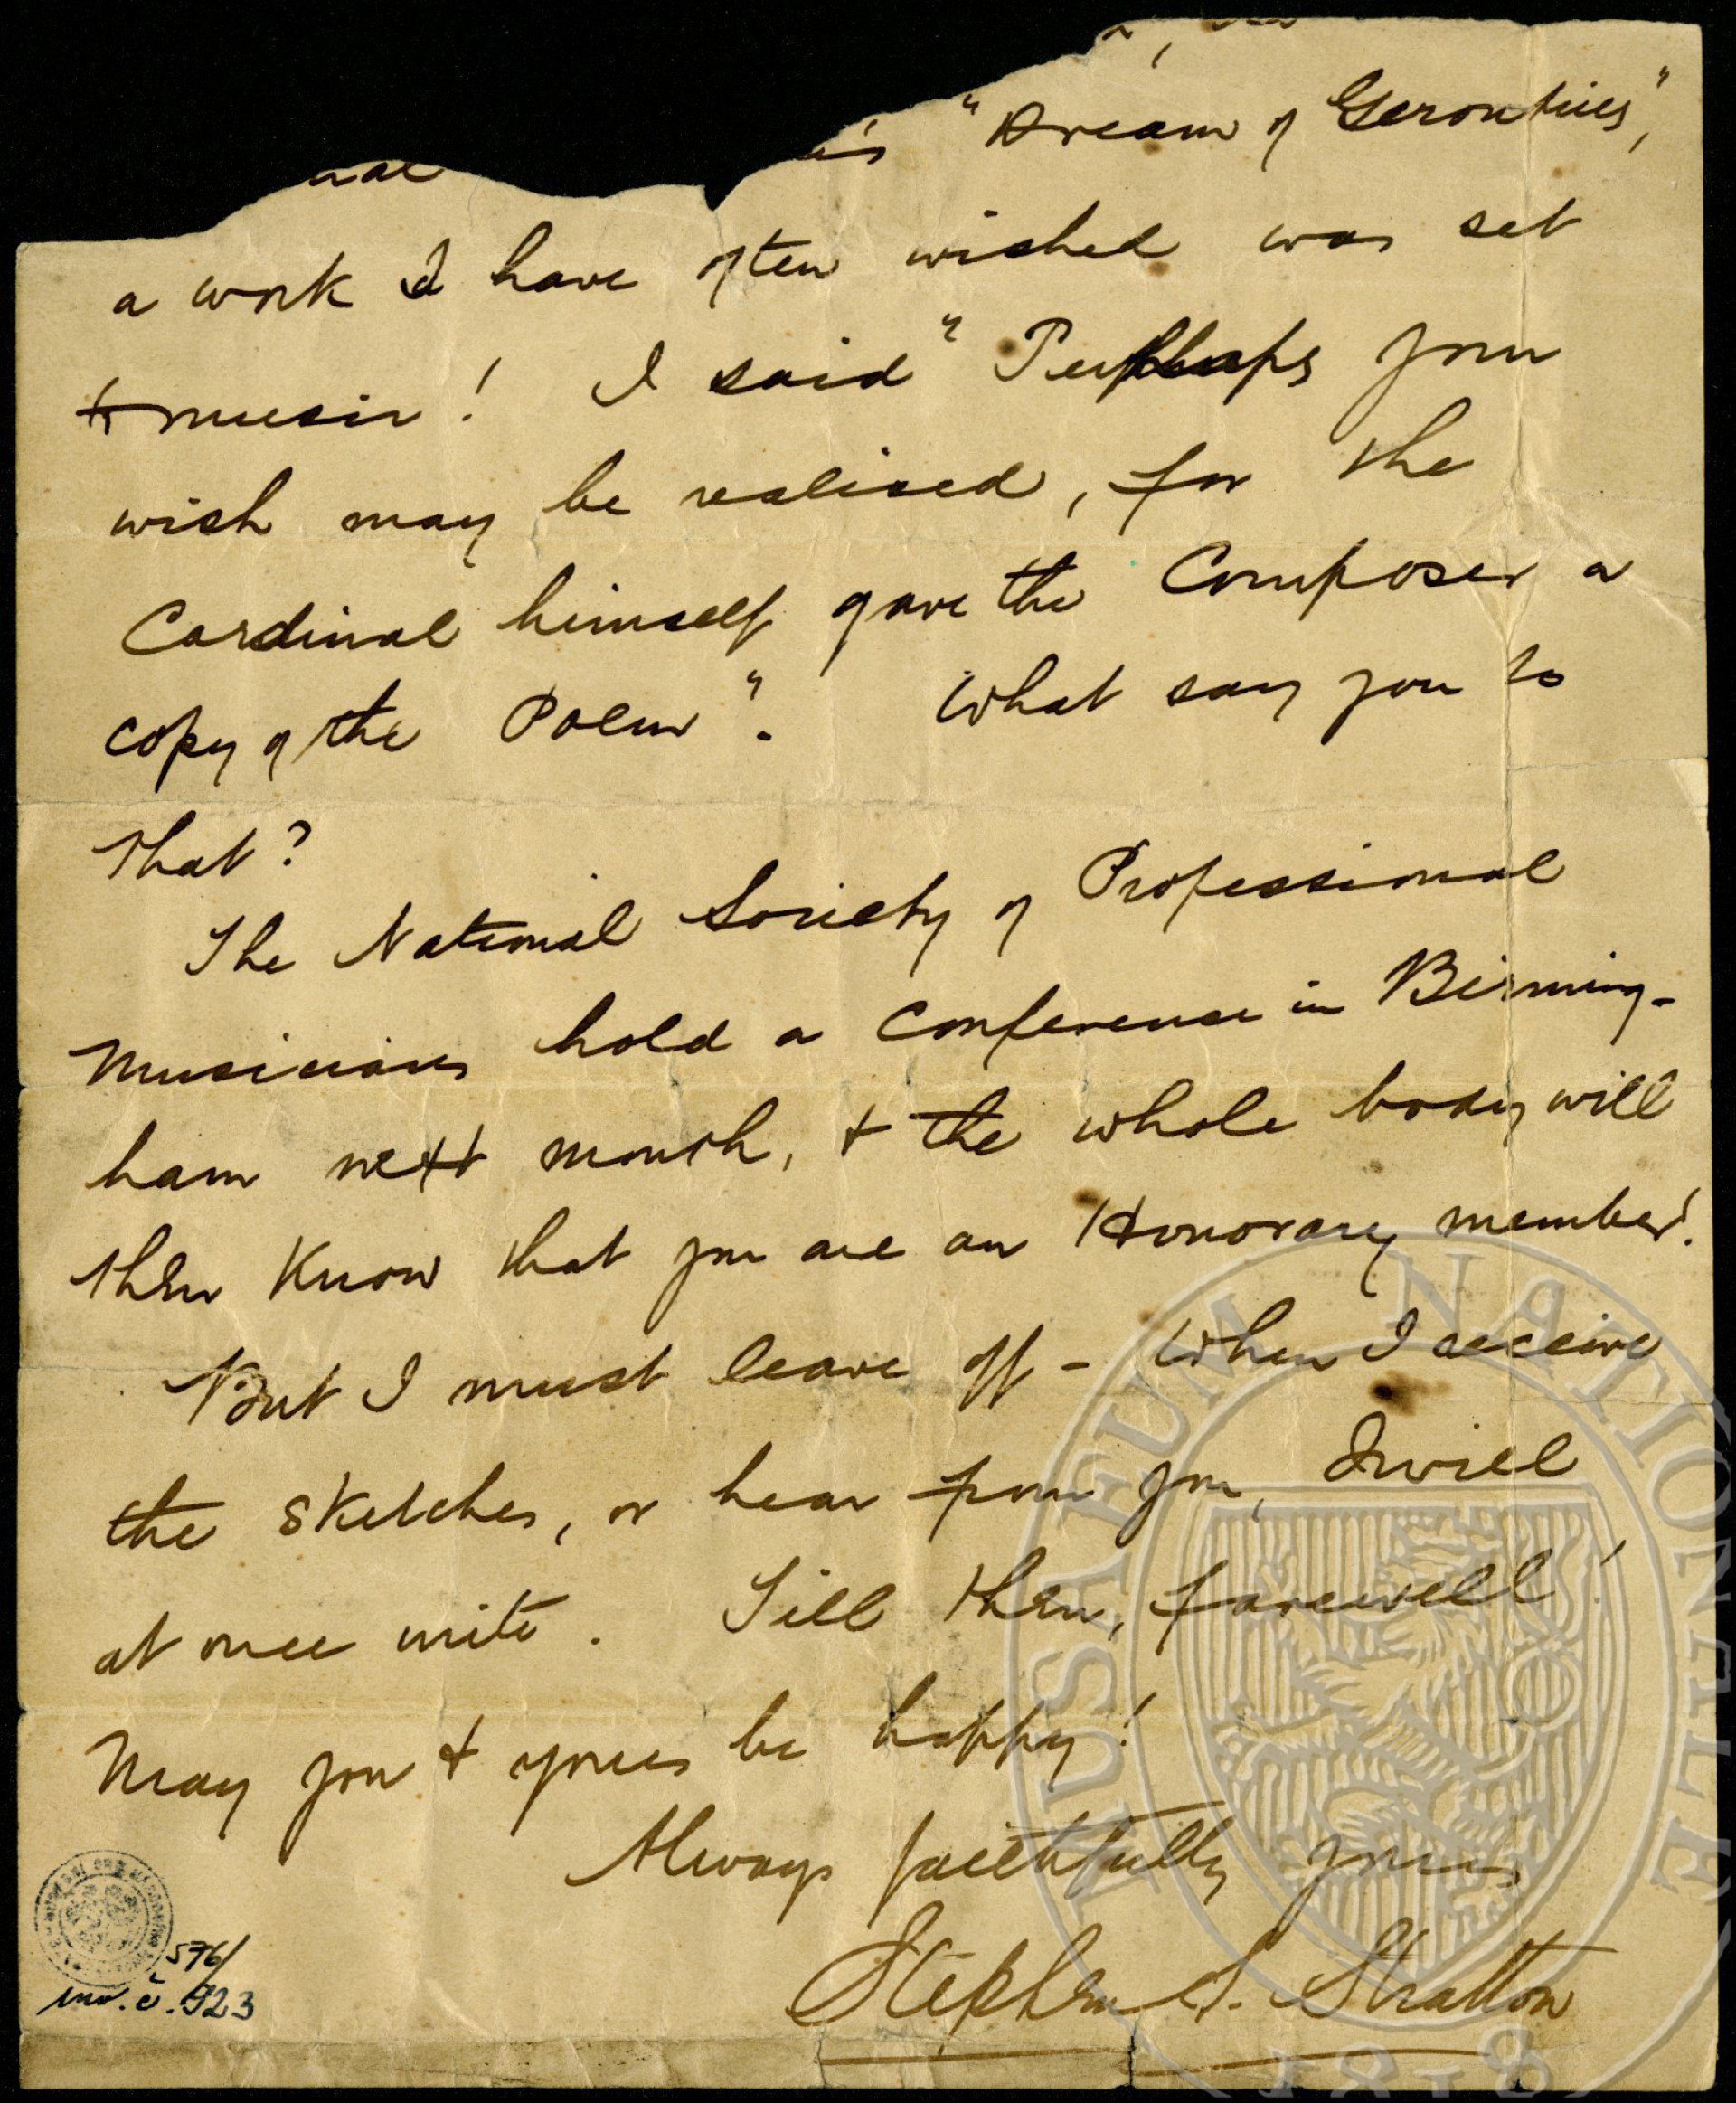 "Dream of Gerontius",
a work I have often wished was set
to music! I said "Perhaps your
wish may be realised, for the
Cardinal himself gave the Composer a
copy of the Poem". What say you to
that?
The National Society of Professional
Musicians hold a Conference in Birming-
ham next month, & the whole body will
then know that you are an Honorary member!
But I must leave off - When I receive
the sketches, or hear from you, I will
at once write. Till then, farewell!
May you & yours be happy!
Always faithfully yours
Stephen S. Stratton
576/
inv. č. 923
MUSAEUM NATIONALE
1818